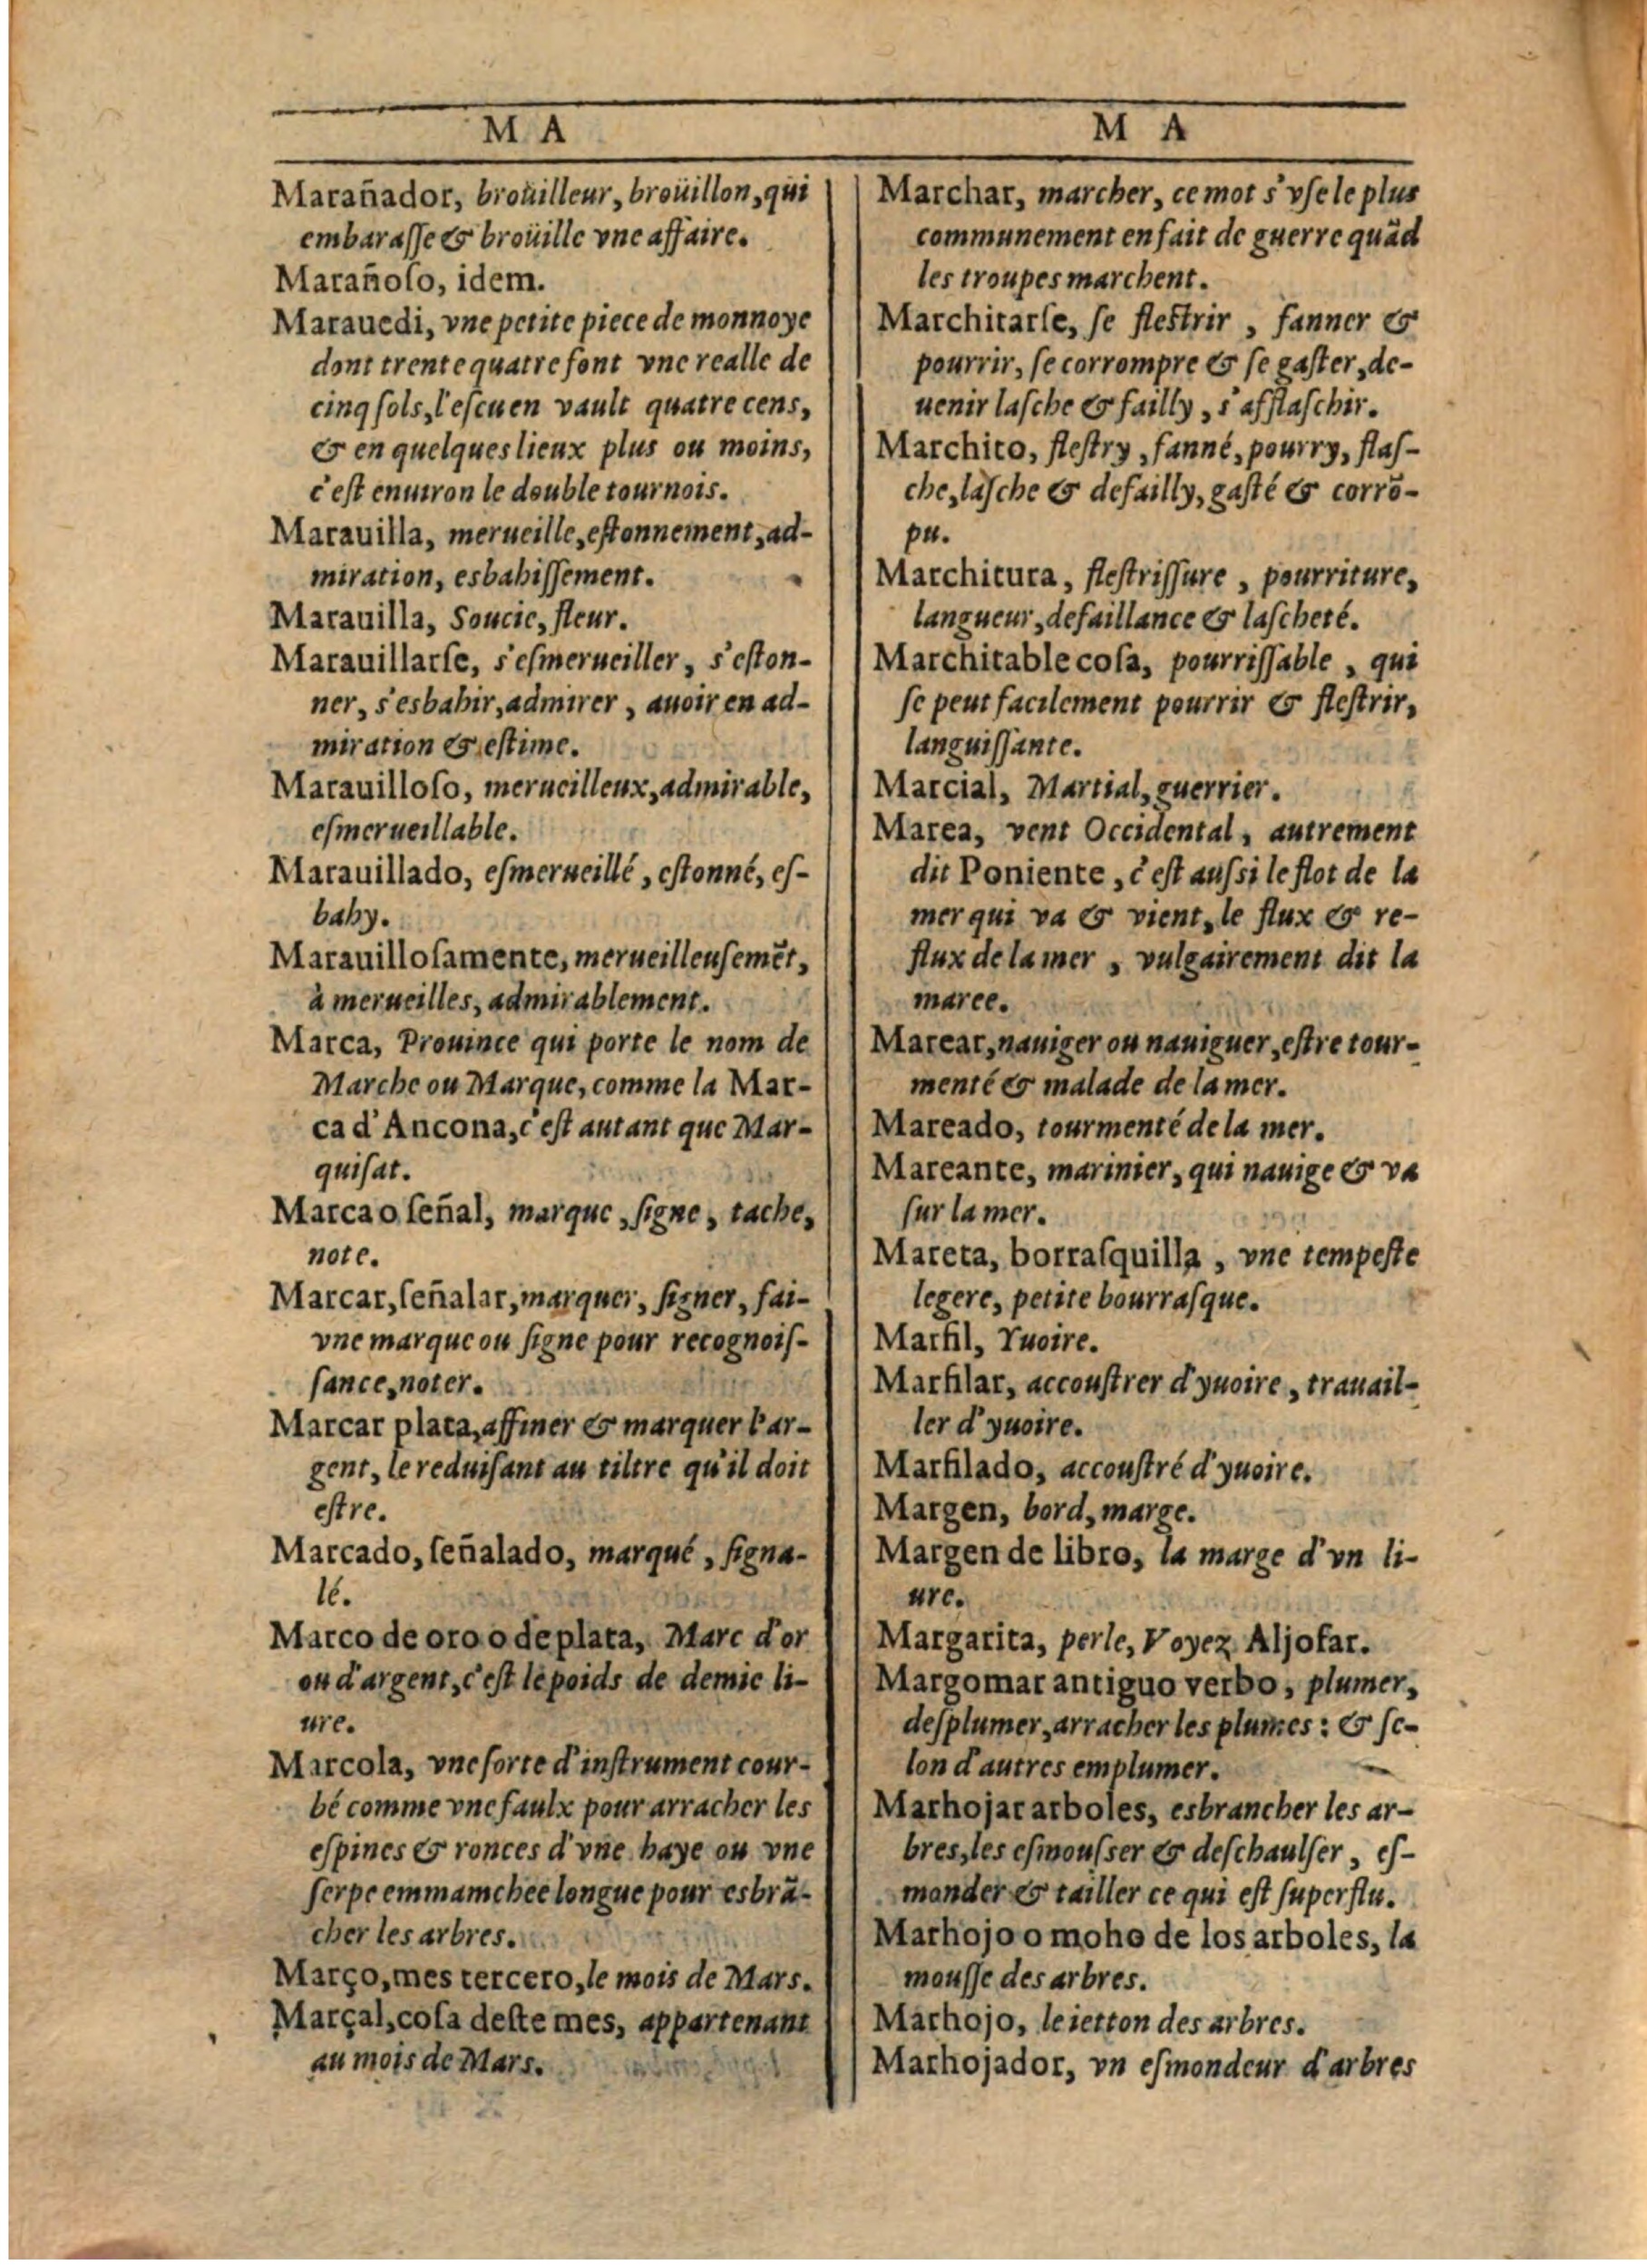 M A
Marañador, broüilleur, broüillon, qui
embaraſſe & broüille vne affaire.
Marañoſo, idem.
Marauedi, vne petite piece de monnoye
dont trente quatre font vne realle de
cinq ſols, l'eſcu en vault quatre cens,
& en quelques lieux plus ou moins,
c'eſt enuiron le double tournois.
Marauilla, merueille, eſtonnement, ad-
miration, esbahiſſement.
Marauilla, Soucie, fleur.
Marauillarſe, s'eſmerueiller, s'eſton-
ner, s'esbahir, admirer, auoir en ad-
miration & eſtime.
Marauilloſo, merueilleux, admirable,
eſmerueillable.
Marauillado, eſmerueillé, eſtonné, eſ-
bahy.
Marauilloſamente, merueilleuſemẽt,
à merueilles, admirablement.
Marca, Prouince qui porte le nom de
Marche ou Marque, comme la Mar-
ca d'Ancona, c'eſt autant que Mar-
quiſat.
Marca o ſeñal, marque, ſigne, tache,
note.
Marcar, ſeñalar, marquer, ſigner, fai-
vne marque ou ſigne pour recognoiſ-
ſance, noter.
Marcar plata, affiner & marquer l'ar-
gent, le reduiſant au tiltre qu'il doit
eſtre.
Marcado, ſeñalado, marqué, ſigna-
lé.
Marco de oro o de plata, Marc d'or
ou d'argent, c'eſt le poids de demie li-
ure.
Marcola, vne ſorte d'inſtrument cour-
bé comme vne faulx pour arracher les
eſpines & ronces d'vne haye ou vne
ſerpe emmamchee longue pour esbrã-
cher les arbres.
Março, mes tercero, le mois de Mars.
Marçal, coſa deſte mes, appartenant
au mois de Mars.
M A
Marchar, marcher, ce mot s'vſe le plus
communement en fait de guerre quãd
les troupes marchent.
Marchitarſe, ſe fleſtrir, fanner &
pourrir, ſe corrompre & ſe gaſter, de-
uenir laſche & failly, s'afflaſchir.
Marchito, fleſtry, fanné, pourry, flaſ-
che, laſche & defailly, gaſté & corrõ-
pu.
Marchitura, fleſtriſſure, pourriture,
langueur, defaillance & laſcheté.
Marchitable coſa, pourriſſable, qui
ſe peut facilement pourrir & fleſtrir,
languiſſante.
Marcial, Martial, guerrier.
Marea, vent Occidental, autrement
dit Poniente, c'eſt auſsi le flot de la
mer qui va & vient, le flux & re-
flux de la mer, vulgairement dit la
maree.
Marear, nauiger ou nauiguer, eſtre tour-
menté & malade de la mer.
Mareado, tourmenté de la mer.
Mareante, marinier, qui nauige & va
ſur la mer.
Mareta, borraſquilla, vne tempeſte
legere, petite bourraſque.
Marfil, Yuoire.
Marfilar, accouſtrer d'yuoire, trauail-
ler d'yuoire.
Marfilado, accouſtré d'yuoire.
Margen, bord, marge.
Margen de libro, la marge d'vn li-
ure.
Margarita, perle, Voyez Aljofar.
Margomar antiguo verbo, plumer,
deſplumer, arracher les plumes : & ſe-
lon d'autres emplumer.
Marhojar arboles, esbrancher les ar-
bres, les eſmouſser & deſchaulſer, eſ-
monder & tailler ce qui eſt ſuperflu.
Marhojo o moho de los arboles, la
mouſſe des arbres.
Marhojo, le ietton des arbres.
Marhojador, vn eſmondeur d'arbres